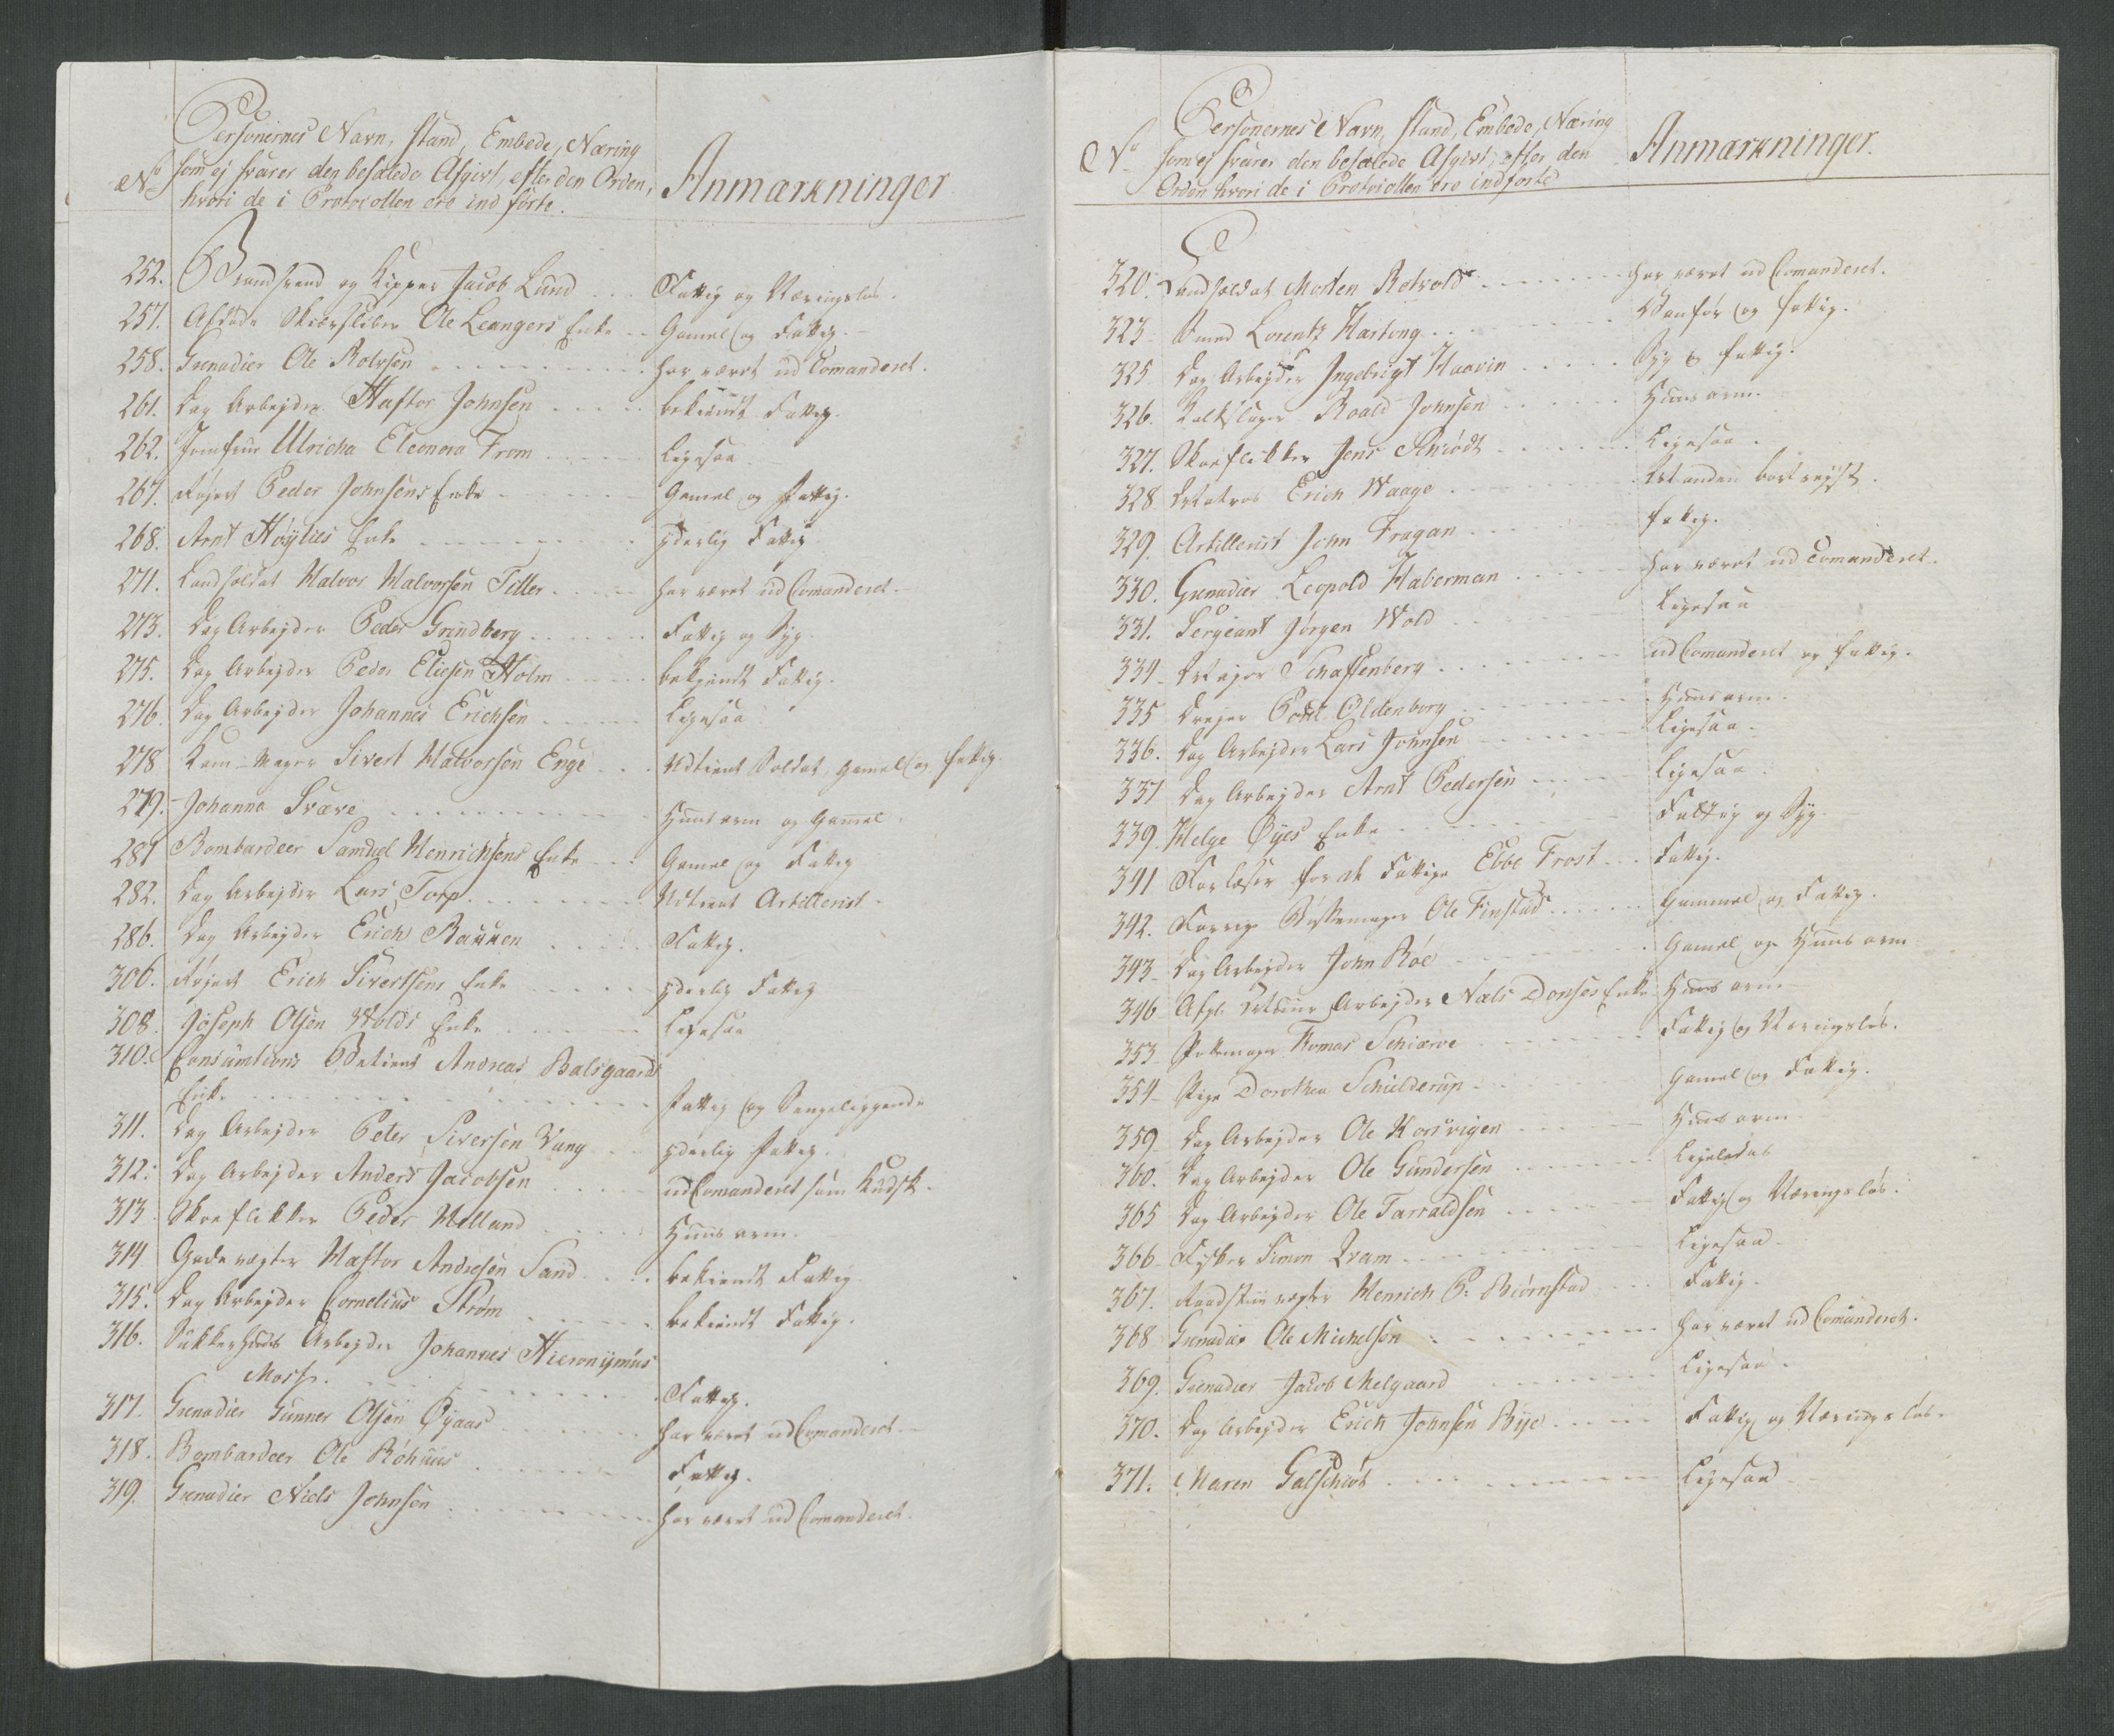 Personernes Navn, stand, Embede, Næring
No som ej svarer den befalede Afgivt, efter den Orden,
hvori de i Protocollen ere ind førte.
Anmærkninger
252. Brandsvend og Kipper Jacob Lund ... Fattig og Næringsløs.
257. Afdøde Skiærsliber Ole Leangers Enke .. Gamel og Fattig.
258. Grenadier Ole Rolvsen ... har været ud Comanderet.
261. Dag Arbejder Haftor Johnsen ... bekiendt Fattig.
262. Jomfrue Ulricha Eleonora From ... Ligesaa
267. Peder Johnsens Enke ... Gamel og fattig.
268. Arnt Høylies Enke ... yderlig Fattig
271. Landsoldat Halvor Halvorsen Tiller ... har været ud Comanderet.
273. Dag Arbejder Peder Grindberg ... Fattig og Syg.
275. Dag Arbejder Peder Eliesen Holm ... bekiendt Fattig.
276. Dag Arbejder Johannes Erichsen ... Ligesaa
278 Kam-mager Sivert Halvorsen Enge ... Udtient Soldat, gamel og fattig.
279. Johanna Svære ... Huus arm og gamel.
281 Bombardeer Samuel Henrichsens Enke ... Gamel og Fattig
282. Dag Arbejder Lars Torp ... Udtient Artillerist.
286. Dag Arbejder Erich Bauken ... Fattig.
306. Erich Sivertsens Enke ... yderlig Fattig
308. Joseph Olsen Wolds Enke ... Ligesaa
310. Consumtions Betient Andreas Balsgaards
Enke ... fattig og Sengeliggende
311. Dag Arbejder Peter Siversen Vang ... yderlig fattig.
312. Dag Arbejder Anders Jacobsen ... ud Comanderet som Kudsk.
313 Skoeflikker Peder Helland ... Huus arm.
314 Gade vægter Haftor Andresen Sand ... bekiendt Fattig
315. Dag Arbejder Cornelius Strøm ... bekiendt Fattig.
316. Sukkerhuus Arbejder Johannes Hieronijmus
Mors. ... Fattig.
317. Grenadier Gunner Olsen Øyaas ... har været ud Comanderet.
318. Bombardeer Ole Røhuus ... Fattig.
319. Grenadier Niels Johnsen ... har været ud Comanderet.
No Personernes Navn, stand, Embede, Næring
som ej svarer den befalede Afgivt, efter den
Orden hvori de i Protocollen ere indførte
Anmærkninger.
320. Landsoldat Morten Rotvold ... har været ud Comanderet.
323 Smed Lorentz Hartong ... Vanfør og fattig.
325 Dag Arbejder Ingebrigt Haavin ... Syg og fattig.
326. Kalkslager Roald Johnsen ... Huus arm.
327. Skoeflikker Jens Schiødt ... Ligesaa.
328 Matros Erich Waage ... bortrejst.
329. Artillerist John Tragan ... fattig.
330. Grenadier Leopold Haberman ... har været ud Comanderet.
331. Sergeant Jørgen Wold ... Ligesaa
334 Major Schaffenberg ... ud Comanderet og fattig.
335 Drejer Poul Oldenborg ... Huus arm.
336. Dag Arbejder Lars Johnsen ... Ligesaa.
337 Dag Arbejder Arnt Pedersen ... Ligesaa
339. Helge Øyes Enke ... Fattig og Syg.
341 Forlæser for de Fattige Ebbe Frost ... Fattig.
342. Forrige Bøssemager Ole Finstad ... Gammel og Fattig.
343 Dag Arbejder John Røe ... Gamel og Huus arm
346 Afgl. Muur Arbejder Niels Donses Enke Huus arm
353 Pottemager Tomas Schiærve ... Fattig og Næringsløs.
354 Pige Dorothea Schielderup ... Gamel og Fattig.
359 Dag Arbejder Ole Korsvigen ... Huus arm
360. Dag Arbejder Ole Gundersen ... Ligeledes
365 Dag Arbejder Ole Tarraldsen ... Fattig og Næringsløs.
366 Fisker Simon Qvam ... Ligesaa
367. Raadstue vægter Henrich P. Biørnstad ... Fattig.
368 Grenadier Ole Michelsen ... har været ud Comanderet.
369. Grenadier Jacob Melgaard ... Ligesaa.
370. Dag Arbejder Erich Johnsen Bye ... Fattig og Næringsløs.
371. Maren Galschiøt ... Ligesaa